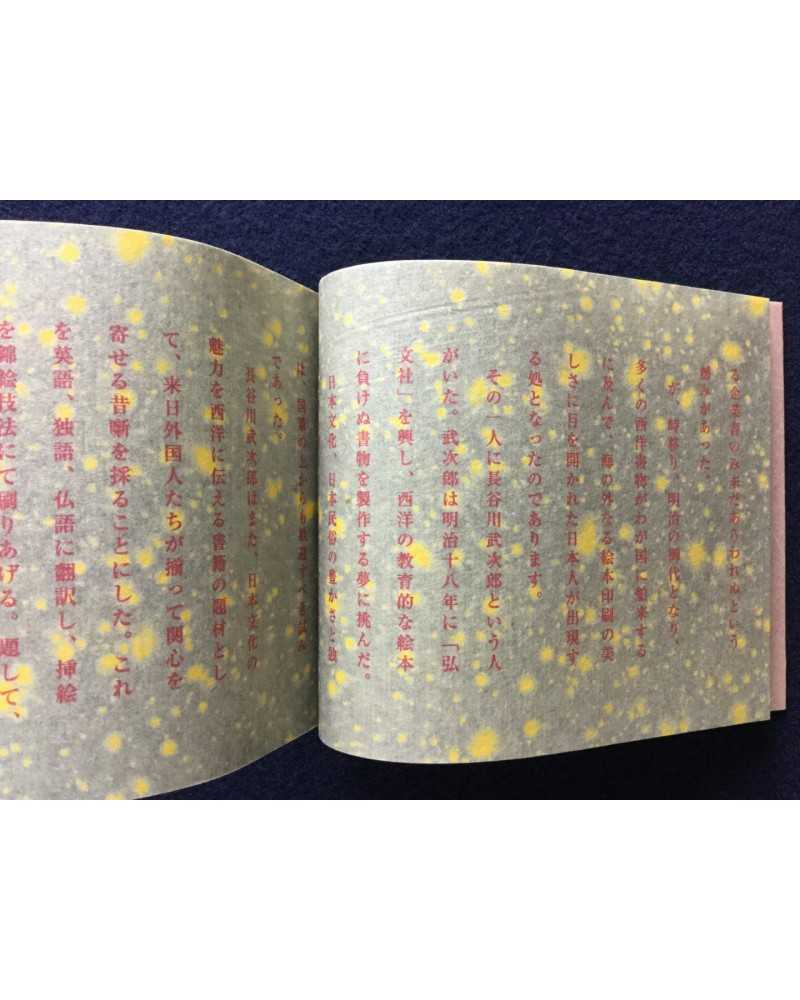 る企業者のみ未だあらわれぬという
悩みがあった。
が、時移り、明治の御代となり、
多くの西洋書物がわが国に舶来する
に及んで、海の外なる絵本印刷の美
しさに目を開かれた日本人が出現す
る処となったのであります。
その一人に長谷川武次郎という人
がいた。武次郎は明治十八年に「弘
文社」を興し、西洋の教育的な絵本
に負けぬ書物を製作する夢に挑んだ。
日本文化、日本民俗の豊かさと独
は、国策の上からも
であった。
長谷川武次郎はまた、日本文化の
魅力を西洋に伝える書籍の題材とし
て、来日外国人たちが揃って関心を
寄せる昔噺を採ることにした。これ
を英語、独語、仏語に翻訳し、挿絵
を錦絵技法にて刷りあげる。題して、